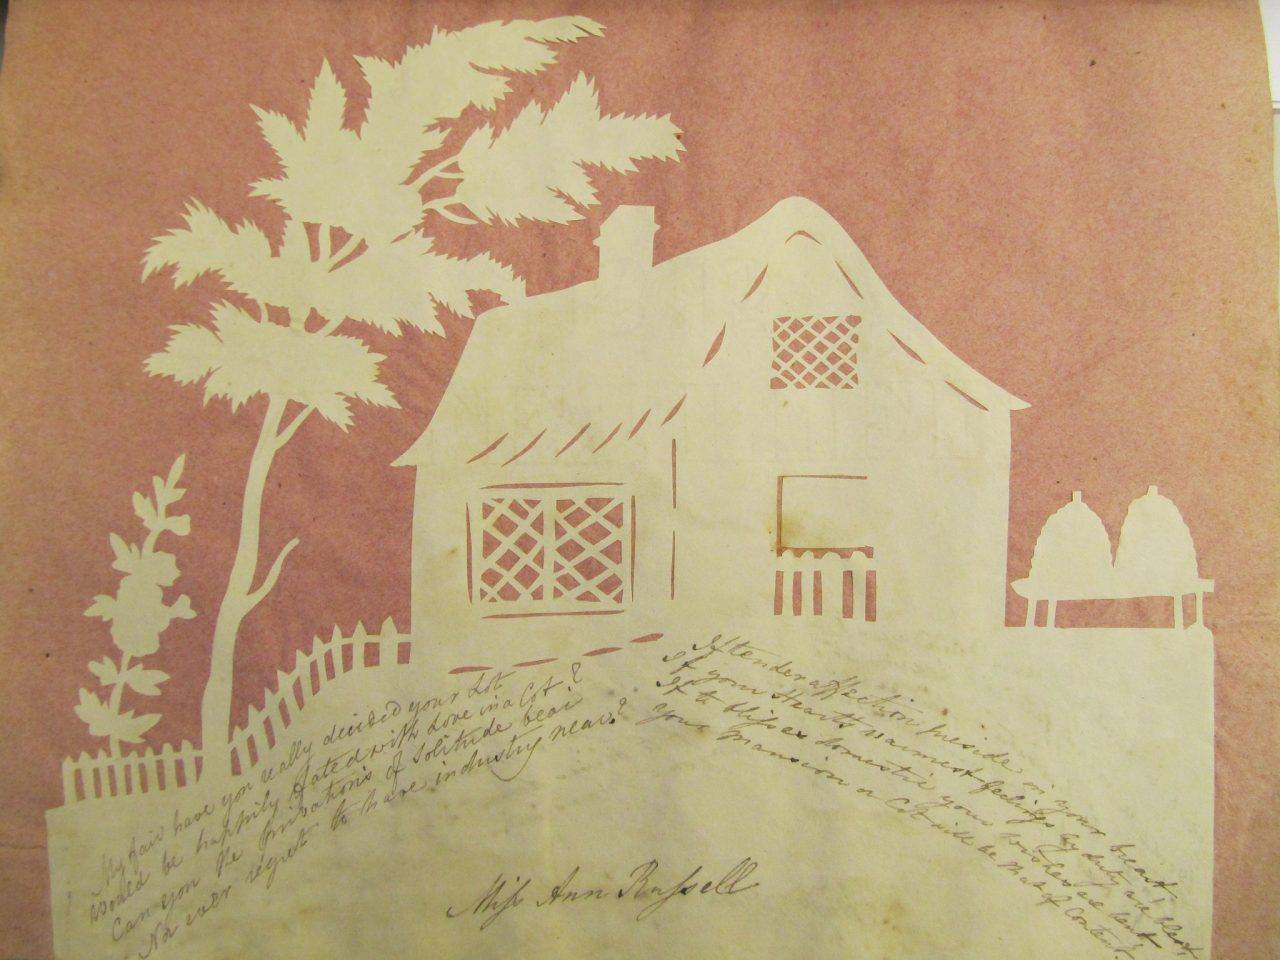 My fair have you really decided your Lot
Would be happily fated with Love in a Cot?
Can you the privations of Solitude bear
Nor ever regret to have industry near?
If tender affection preside in your breast,
If your Heart's warmest feelings by duty are blest,
If to bliss domestic your wishes are bent
Your mansion or Cot will be that of Content.
Miss Ann Russell